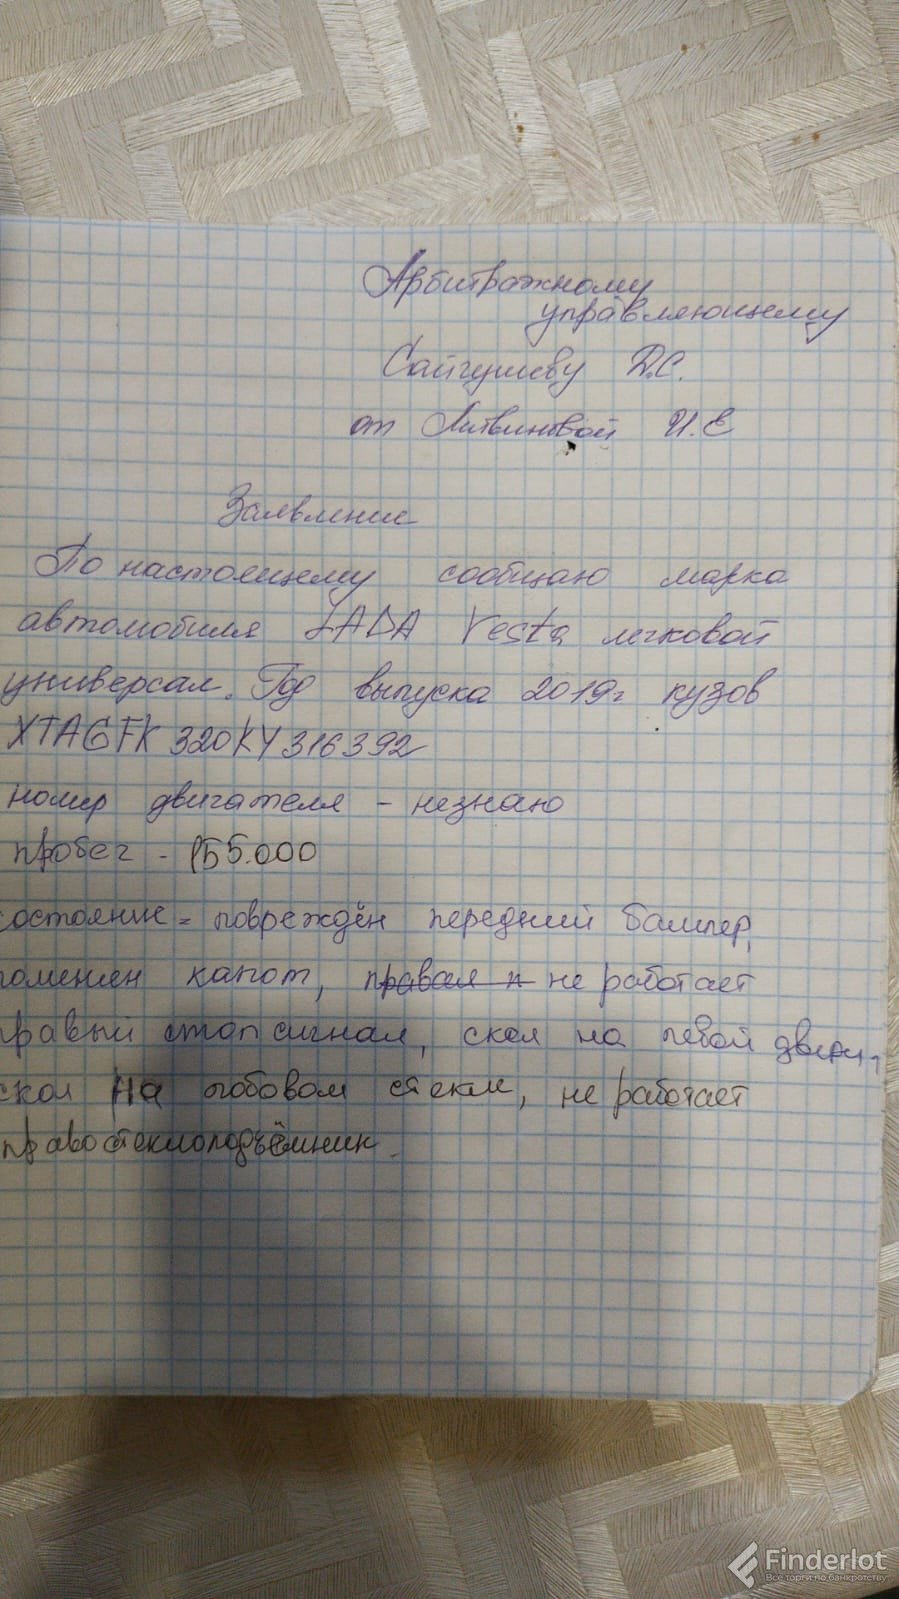 Арбитражному
управляющему
Сайгушеву Д.С.
от Литвиновой И.Е
Заявление
По настоящему сообщаю марка
автомобиля LADA Vesta легковой
универсал. Год выпуска 2019г кузов
XTAGFK320KY316392
номер двигателя - незнаю
пробег - 155.000
состояние = повреждён передний бампер,
поменен капот, правая п не работает
правый стоп сигнал, скол на левой двери,
скол на лобовом стекле, не работает
право стеклоподъёмник.
Finderlot
Все торги по банкротству